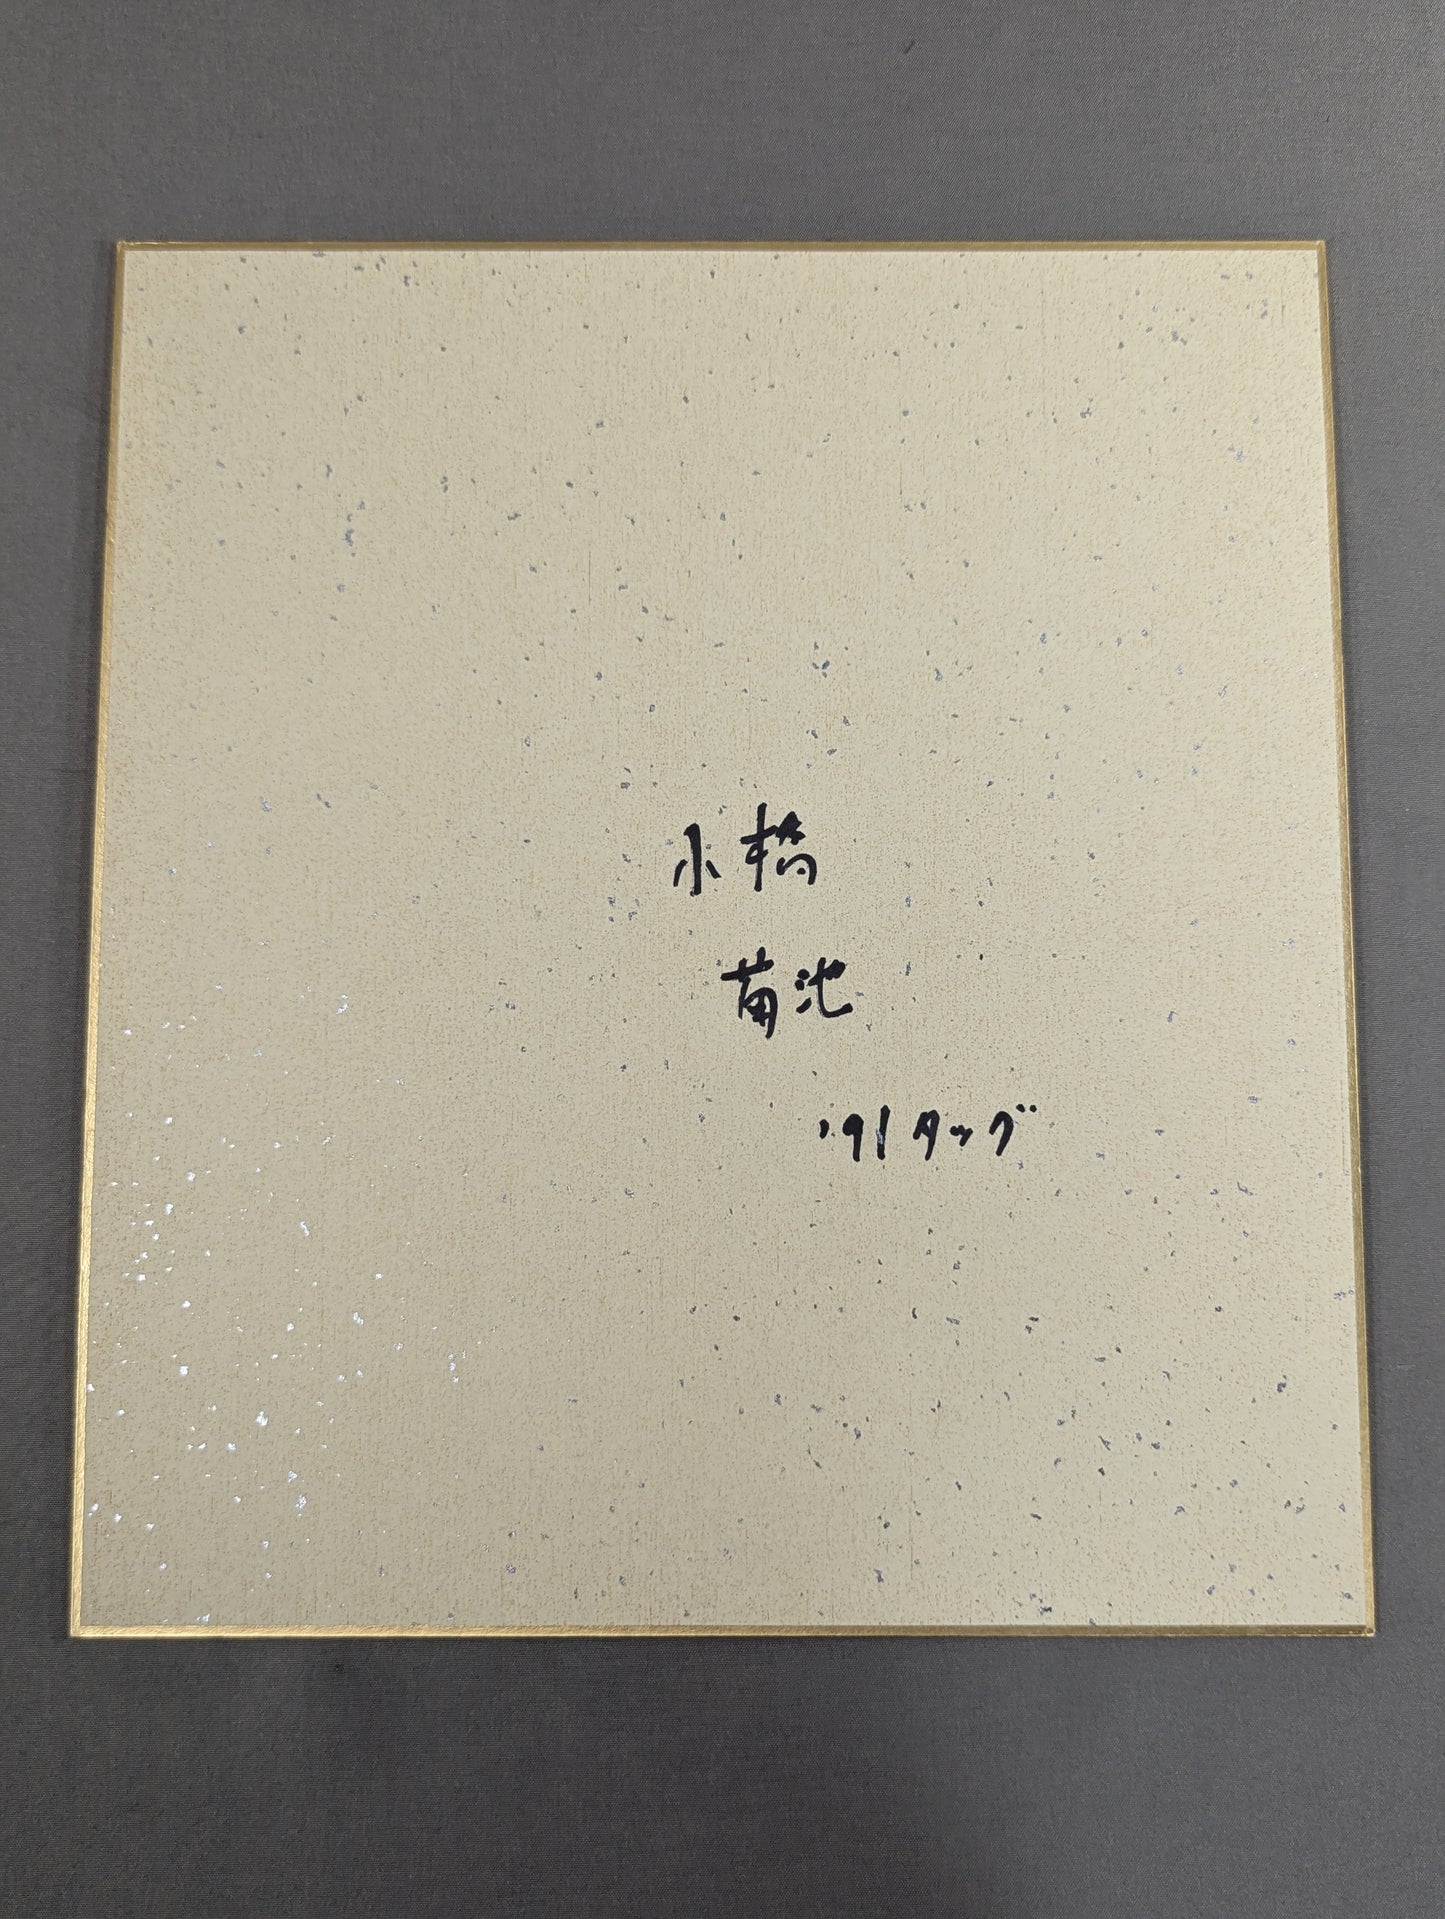 小橋
菊池
'91タッグ